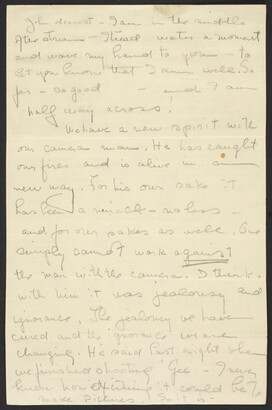 Jh dearest - I am in the middle
of the stream - I tread water a moment
and wave my hand to you - to
let you know that I am well. So
far - so good - and I am
half way across!
We have a new spirit with
our camera man. He has caught
our fires and is alive in an
new way. For his own sake it
has been a miracle - no less -
and for our sakes as well. One
simply cannot work against
the man with the camera. I think
with him it was jealousy and
ignorance. The jealousy we have
cured and the ignorance we are
changing. He said last night when
we finished shooting "Gee - I never
knew how exciting it could be to
make pictures." So it is -